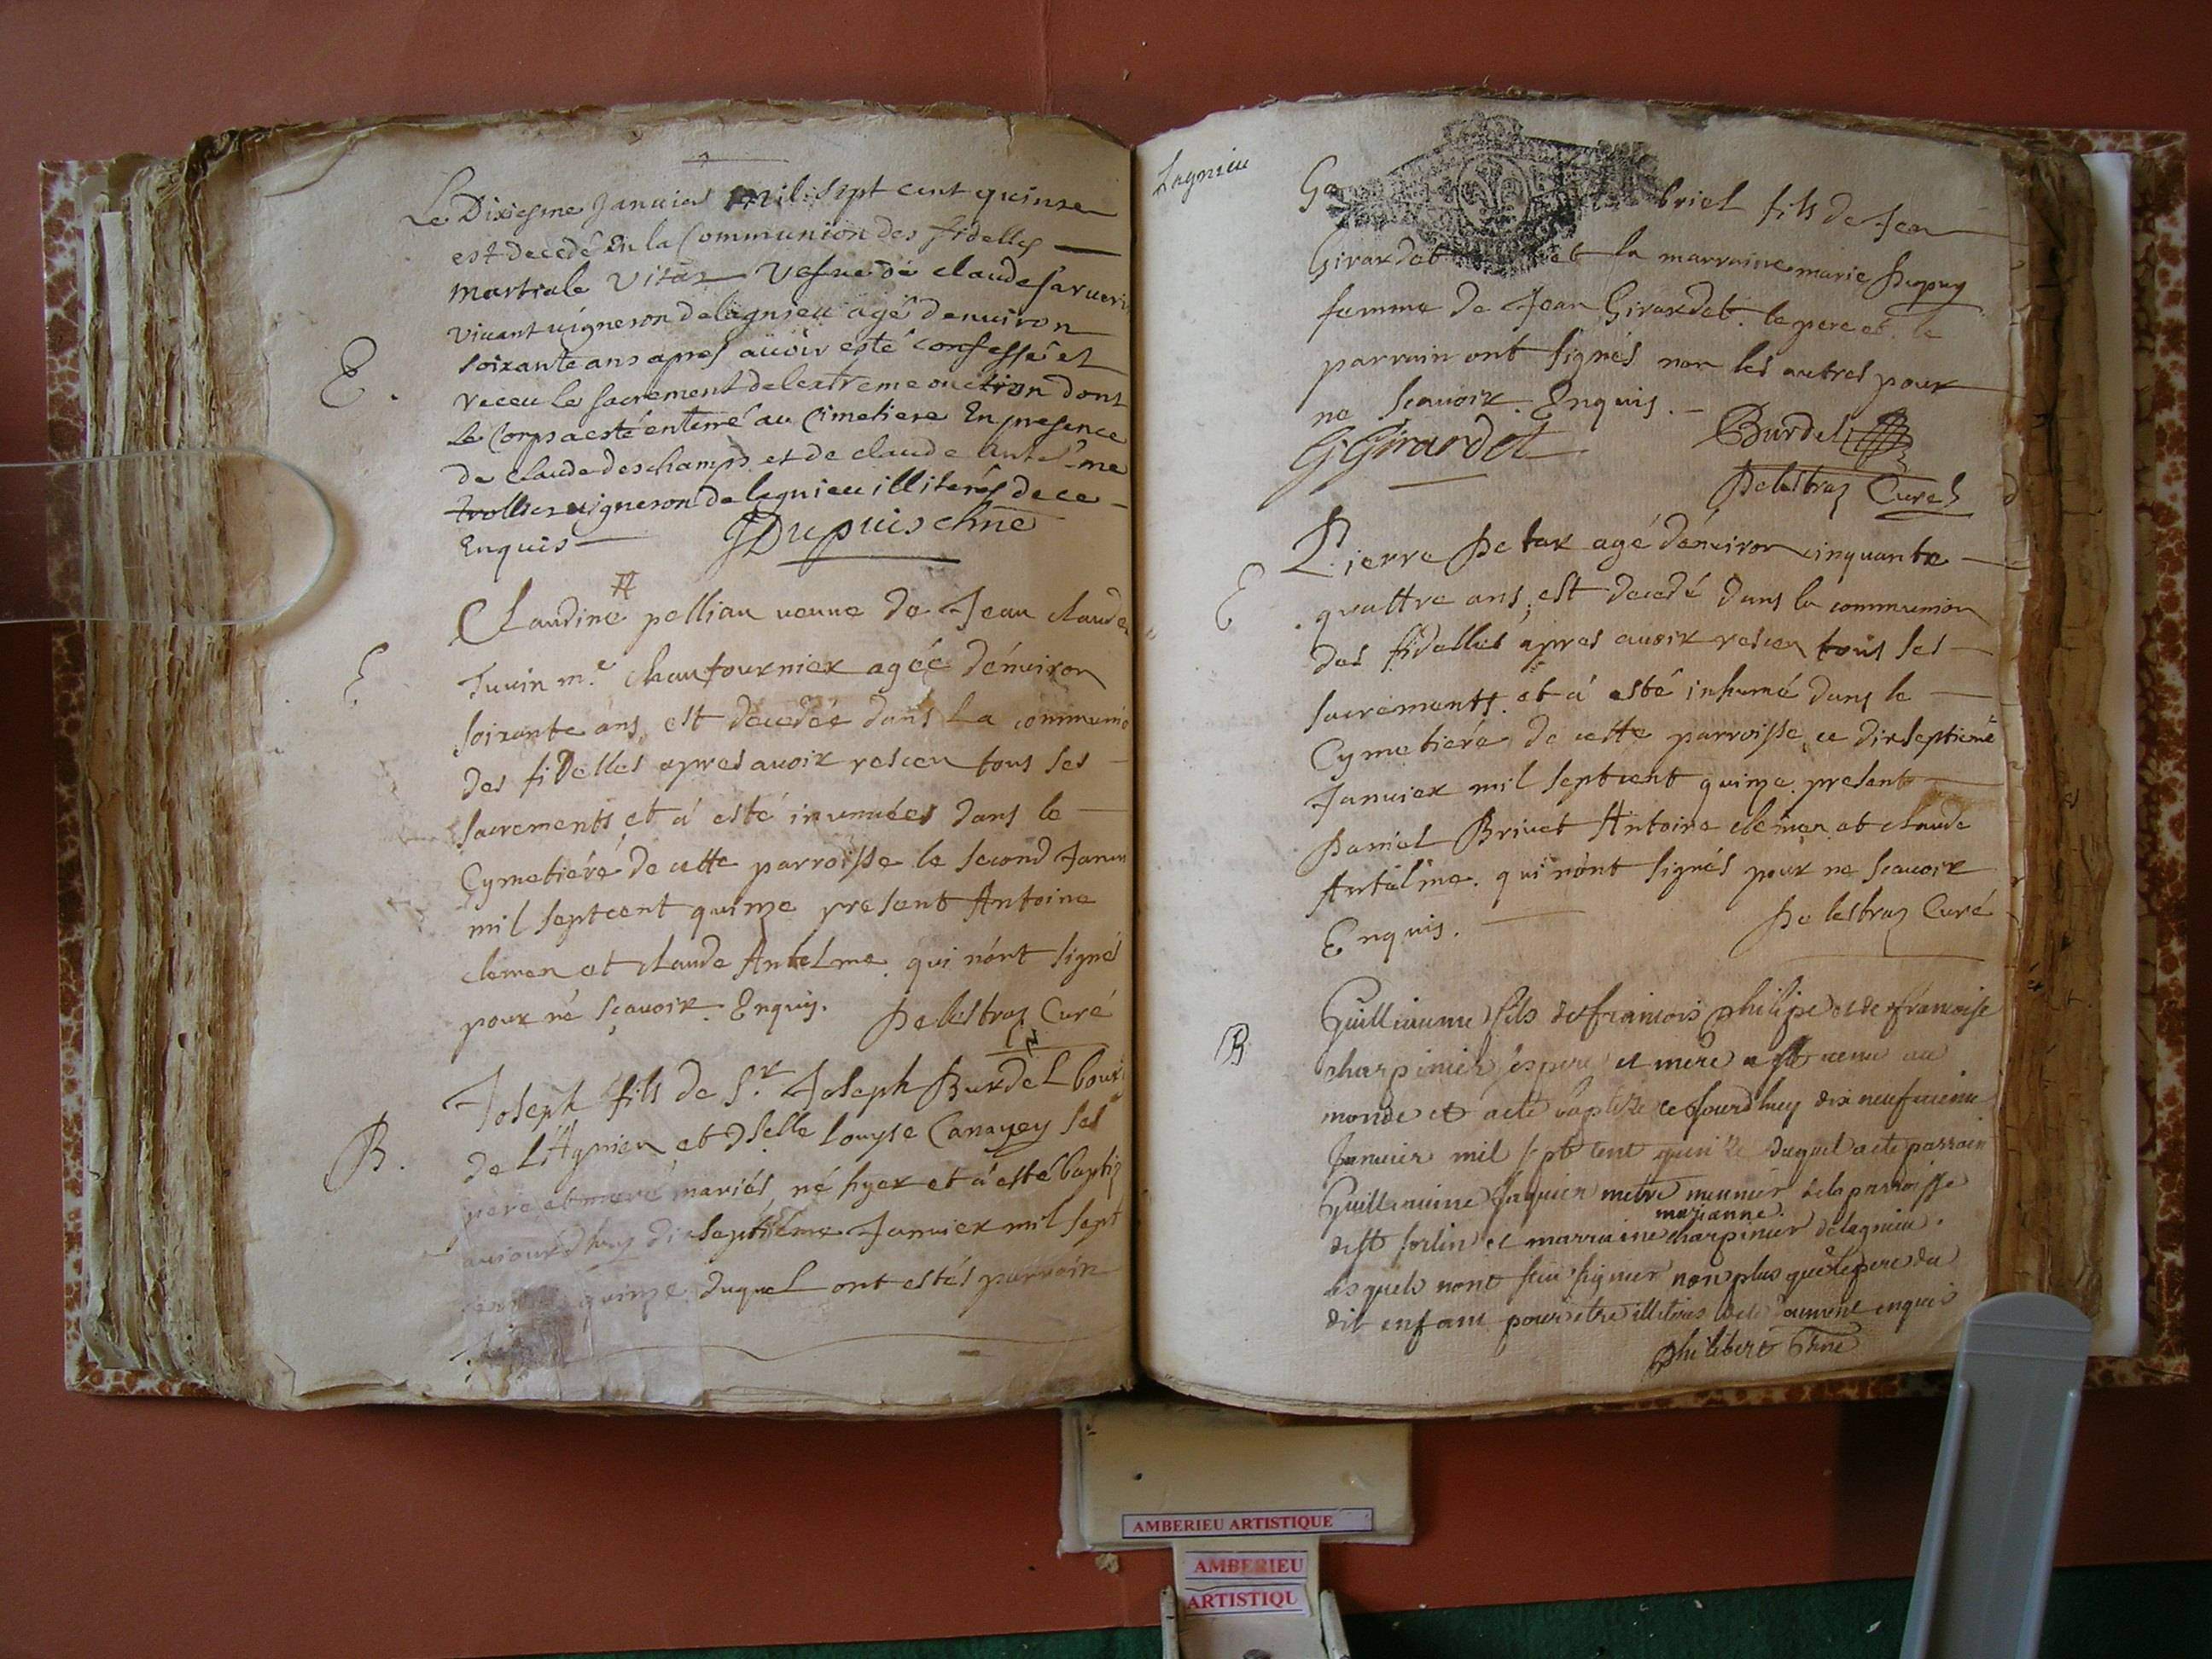 Le Dixiesme Januier mil sept cent quinse
est decedé en la Communion des fidelles
martiale Vitax Vefue de claude
viuant uigneron de lagnieu agé denuiron
soixante ans apres auoir esté confessé et
receu le sacrement de lextreme onction dont
le Corps a esté enterré au Cimetiere En presence
E.
de claude deschamps et de claude antelme
trollier uigneron de lagnieu illiterés de ce
Enquis
JDupuis chne
Claudine pellian veuue de Jean claude
E
Juuin m.e chaufournier agée dénuiron
soixante ans, est decedée dans La communio
des fidelles apres auoir resceu tous ses
sacrements et a esté inumées dans le
Cymetiére de cette parroisse le second Januie
mil septcent quinze present Antoine
clemen et claude Antelme qui nónt signés
pour né sçauoir. Enquis.
Delestraz Curé
Joseph fils de S.r Joseph Burdel bourg
B.
de L'Agnieu et dselle Louyse Canayey ses
pere et mere mariés, né hyer et á esté baptiz
aujourdhuy dixseptiéme Januier mil sept
quinze duquel ont estés parrain
Lagnieu
Ga briel fils de Jean
Girardet et la marraine marie Dupuy
femme de Jean Girardet. le pere et le
parrain ont signés non les autres pour
ne Scauoir. Enquis.
GGirardet
Burdel
Delestraz Curé
Pierre Detax agé dénuiron cinquante
E
quattre ans, est decedé dans la communion
des fidelles apres auoir resceu tous ses
sacrements. et á esté inhumé dans le
Cymetiere de cette parroisse ce dixseptiéme
Januier mil septcent quinze. present
Daniel Briuet Antoine clémen et claude
Antélme. qui nónt signés pour ne scauoir
Enquis.
Delestraz Curé
Guilliaume fils de francois philipe et de francoise
B
charpinier ses pere et mere est venu au
monde et a été baptize ce Jourdhuy dix neufuieme
Januier mil sept cent quinze duquel a été parrain
Guilliaume Jaquier metre meunier de la parroisse
marianne
de st sorlin et marraine charpinier de lagnieu.
lesquels nont sceu signer non plus que le pere du
dit enfant pour etre illiteres de ce enquis
philibert Chne
AMBERIEU ARTISTIQUE
AMBERIEU
ARTISTIQU